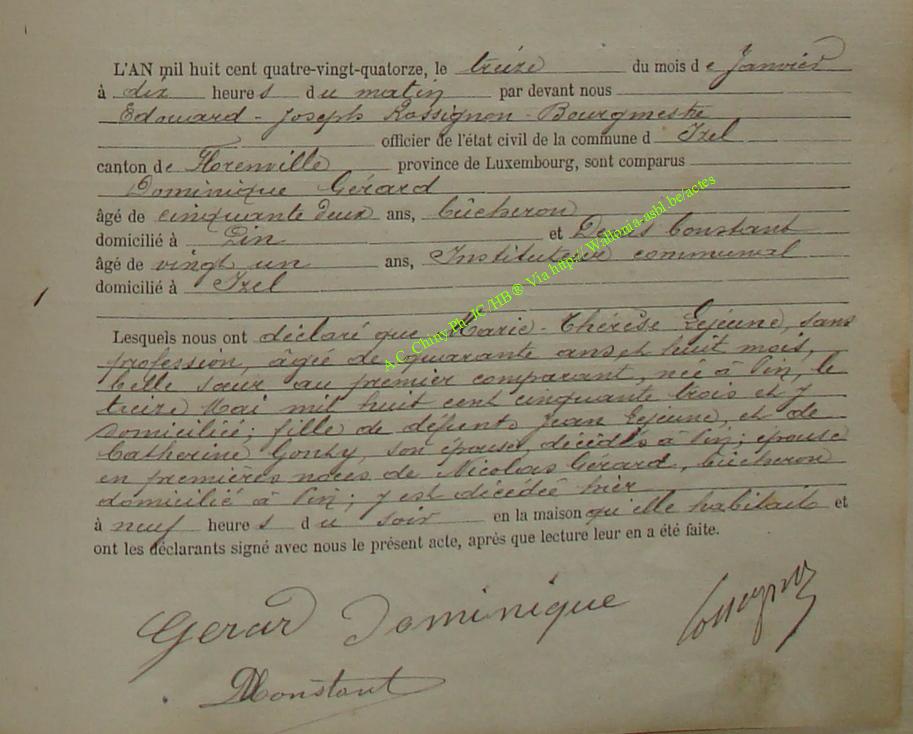 L'AN mil huit cent quatre-vingt-quatorze, le treize du mois de Janvier
à dix heures du matin par devant nous
Edouard - Joseph Rossignon - Bourgmestre
officier de l'état civil de la commune d Izel
canton de Florenville province de Luxembourg, sont comparus
Dominique Gérard
âgé de cinquante deux ans, bûcheron
domicilié à Pin et Constant
âgé de vingt un ans, Instituteur communal
domicilié à Izel
Lesquels nous ont déclaré que Marie - Thérèse Lejeune, sans
profession, âgée de quarante ans et huit mois,
belle sœur au premier comparant, née à Pin, le
treize Mai mil huit cent cinquante trois et y
domiciliée; fille de défunts Jean Lejeune, et de
Catherine Gonty, son épouse, décédés à Pin; épouse
en premières noces de Nicolas Gérard, bûcheron
domicilié à Pin; y est décédée hier
à neuf heures du soir en la maison qu'elle habitait et
ont les déclarants signé avec nous le présent acte, après que lecture leur en a été faite.
Gerard Dominique
DConstant
A.C. Chiny Ph. JC /HB ® Via http://Wallonia-asbl.be/actes